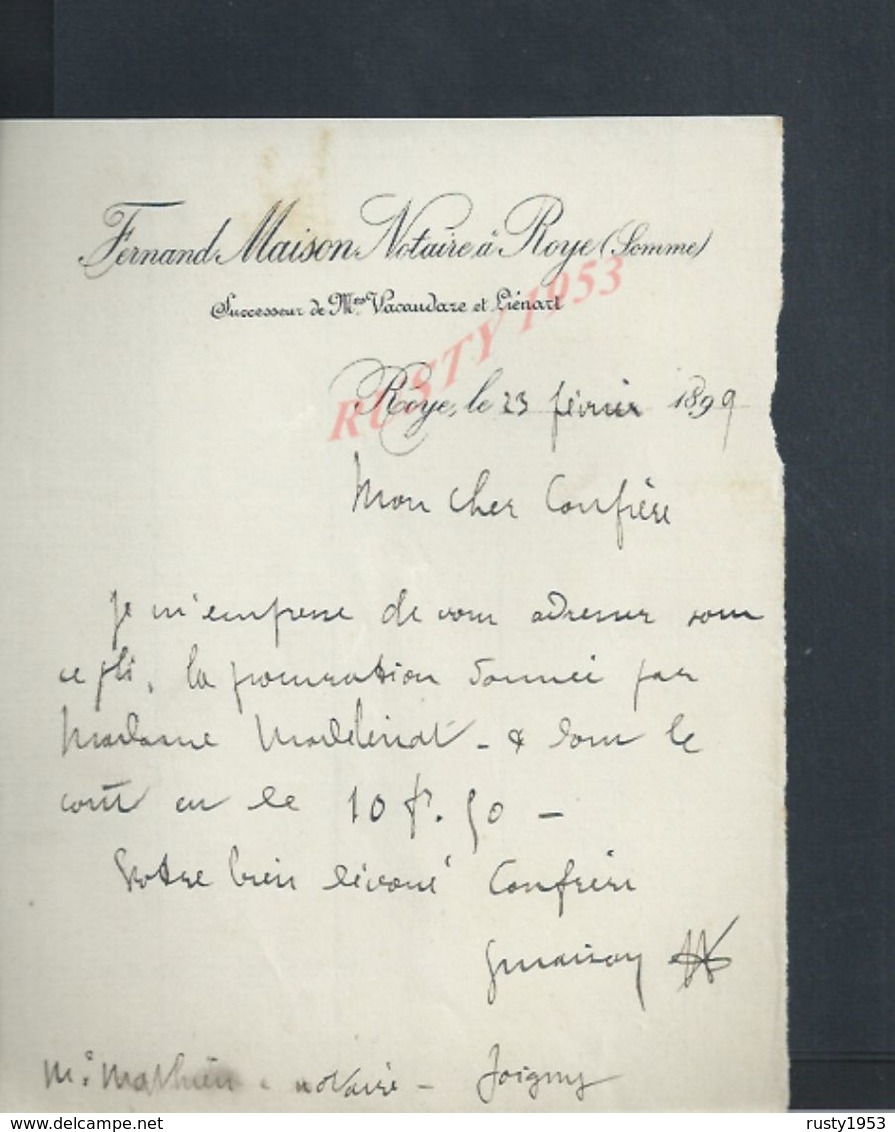 Fernand Maison Notaire à Roye (Somme)
Successeur de Mes Vacaudare et Liénart
RUSTY 1953
Roye, le 23 février 1899
Mon cher Confrère
Je m'empresse de vous adresser sous
ce pli, la procuration donnée par
Madame & dont le
coût est de 10 f. 50 -
Votre bien dévoué Confrère
Maison
Me Mathieu - notaire - Joigny
delcampe.net
rusty1953